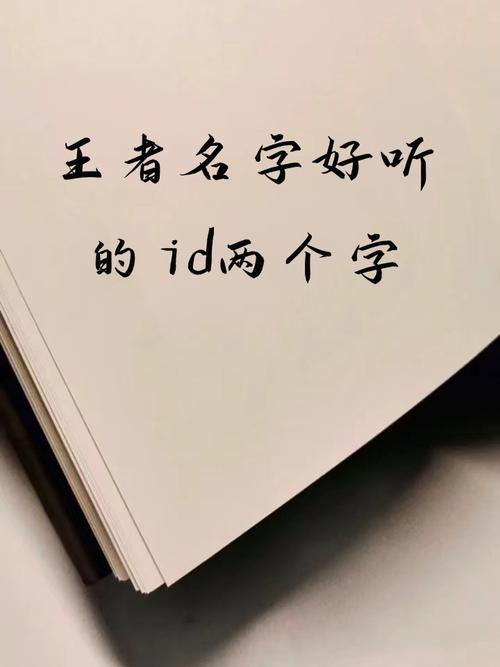 王者名字好听
的id两个字